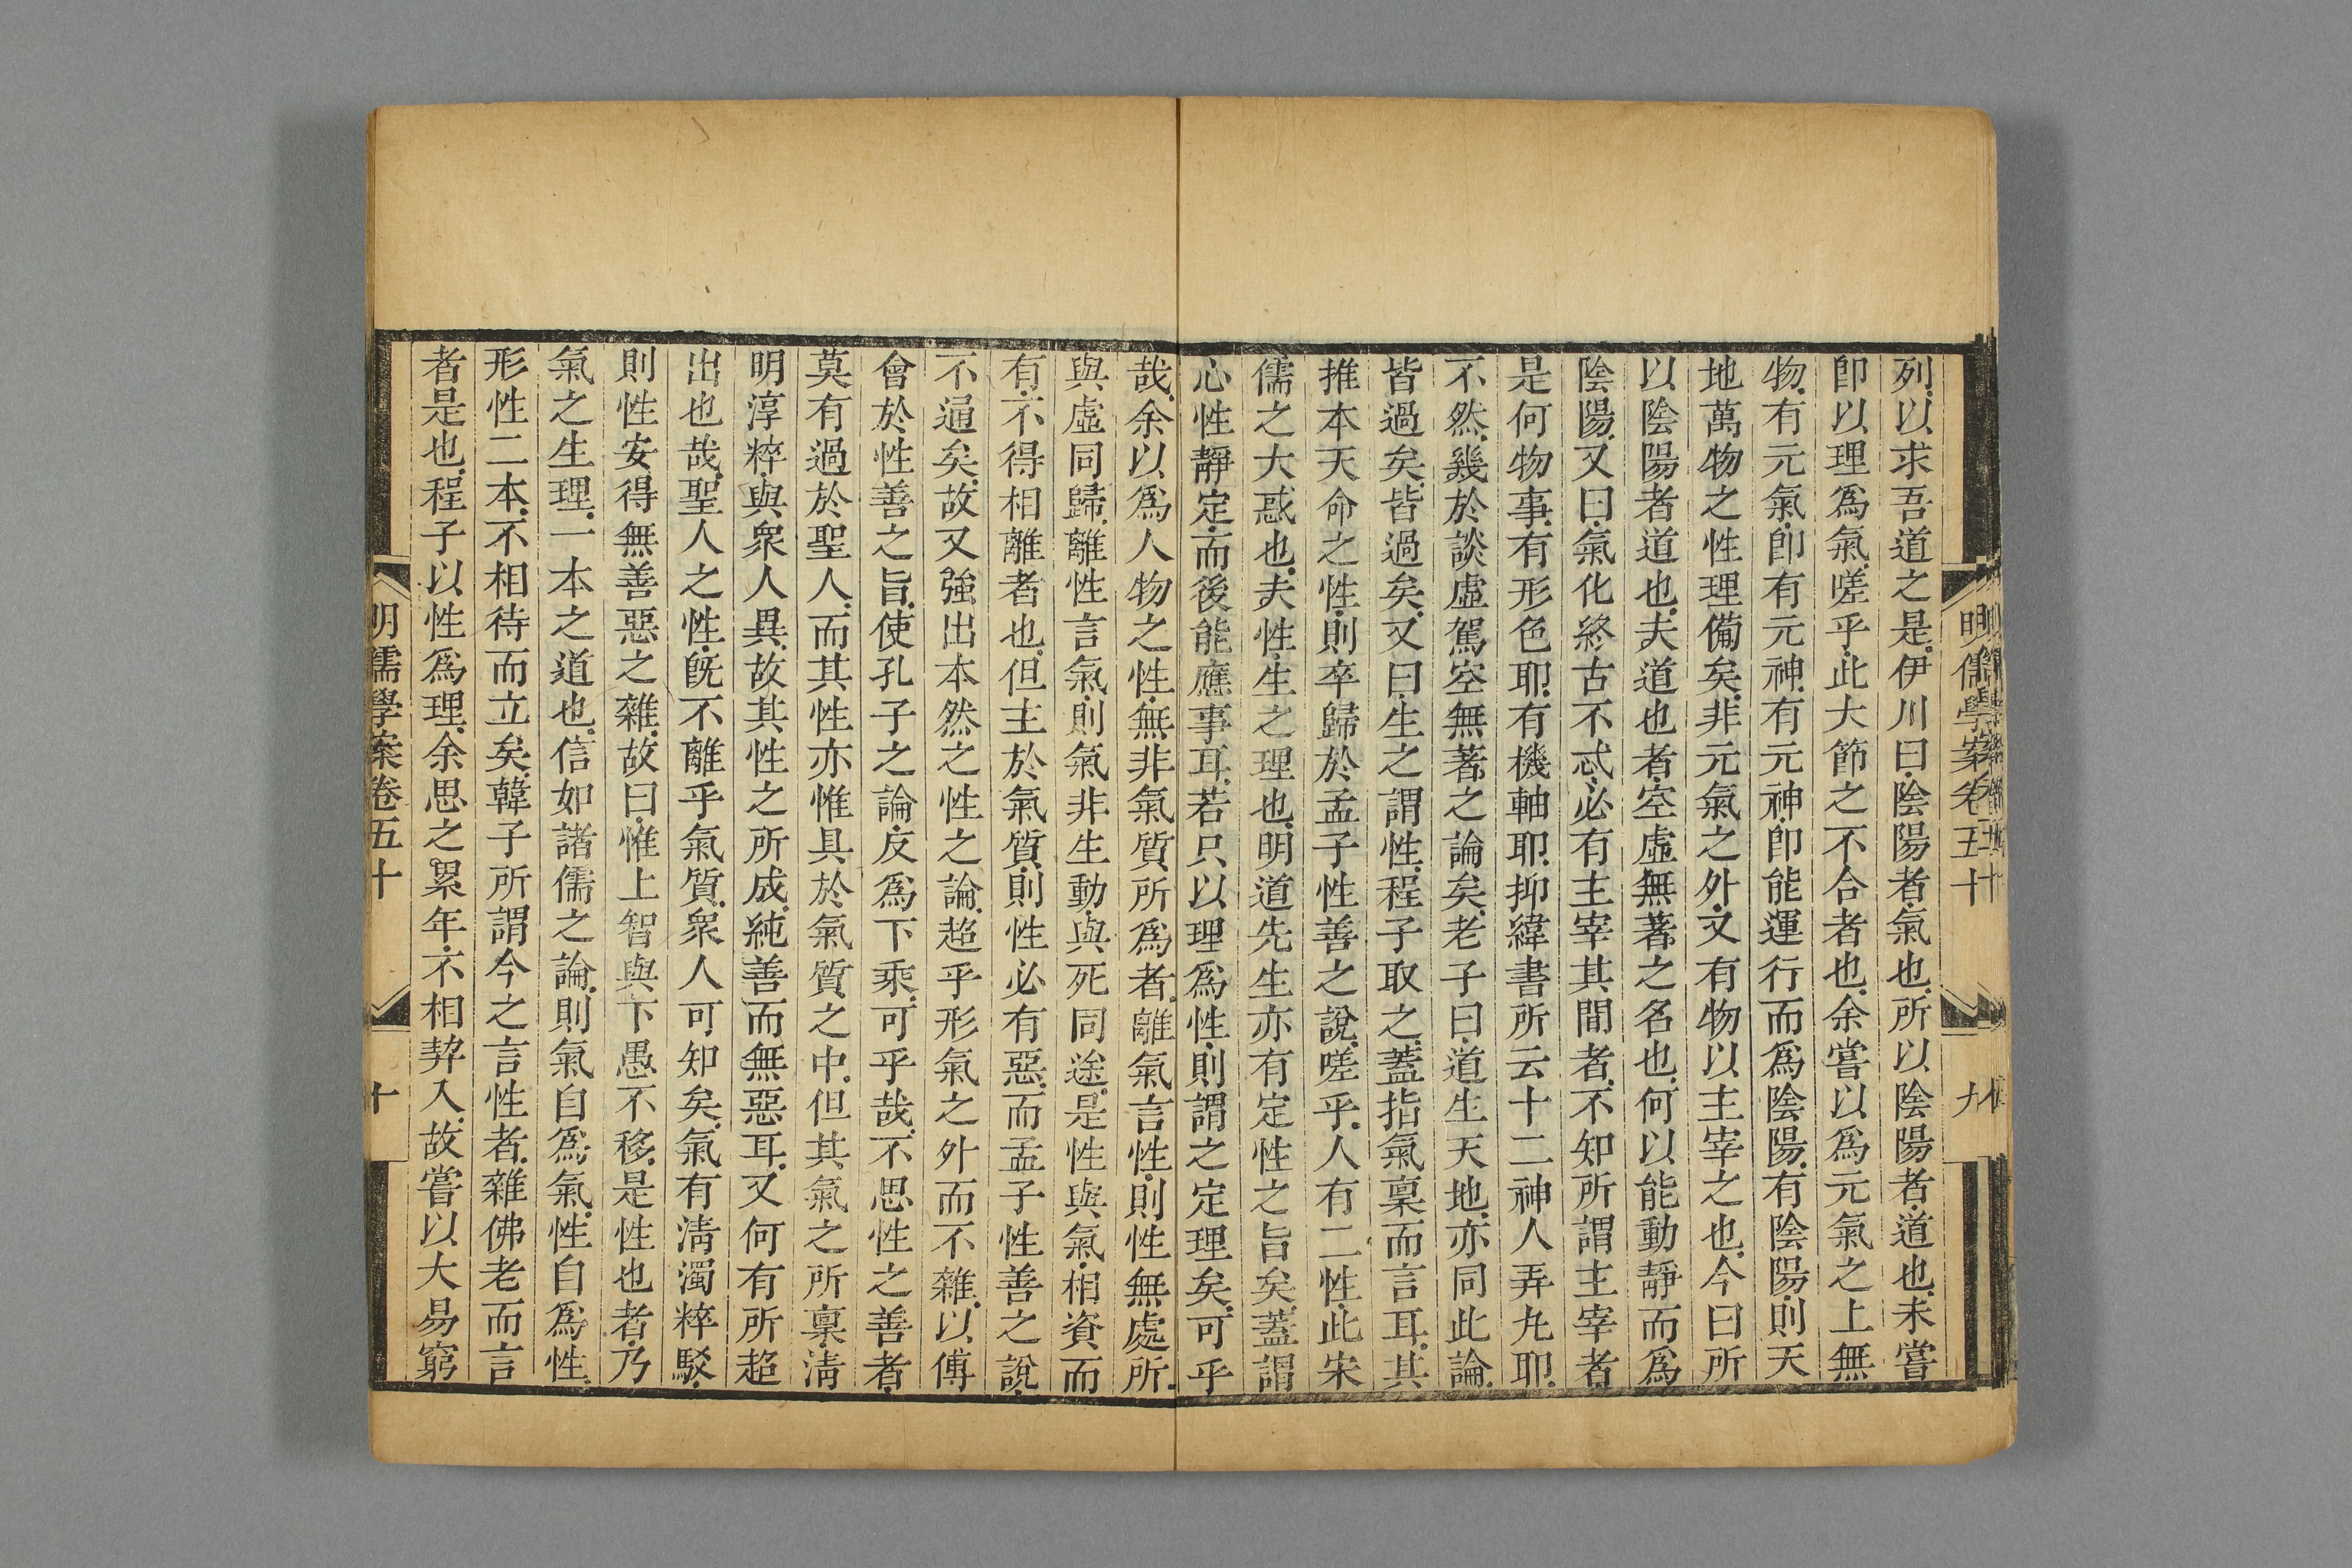 明儒學案卷五十
九
列以求吾道之是伊川曰陰陽者氣也所以陰陽者道也未嘗
即以理爲氣嗟乎此大節之不合者也余嘗以爲元氣之上無
物有元氣即有元神有元神即能運行而爲陰陽有陰陽則天
地萬物之性理備矣非元氣之外又有物以主宰之也今曰所
以陰陽者道也夫道也者空虛無著之名也何以能動靜而爲
陰陽又曰氣化終古不忒必有主宰其間者不知所謂主宰者
是何物事有形色耶有機軸耶抑緯書所云十二神人弄丸耶
不然幾於談虛駕空無著之論矣老子曰道生天地亦同此論
皆過矣皆過矣又曰生之謂性程子取之蓋指氣稟而言耳其
推本天命之性則卒歸於孟子性善之說嗟乎人有二性此宋
儒之大惑也夫性生之理也明道先生亦有定性之旨矣蓋謂
心性靜定而後能應事耳若只以理爲性則謂之定理矣可乎
哉余以爲人物之性無非氣質所爲者離氣言性則性無處所
與虛同歸離性言氣則氣非生動與死同途是性與氣相資而
有不得相離者也但主於氣質則性必有惡而孟子性善之說
不通矣故又強出本然之性之論超乎形氣之外而不雜以傅
會於性善之旨使孔子之論反爲下乘可乎哉不思性之善者
莫有過於聖人而其性亦惟具於氣質之中但其氣之所稟清
明淳粹與衆人異故其性之所成純善而無惡耳又何有所超
出也哉聖人之性旣不離乎氣質衆人可知矣氣有清濁粹駁
則性安得無善惡之雜故曰惟上智與下愚不移是性也者乃
氣之生理一本之道也信如諸儒之論則氣自爲氣性自爲性
形性二本不相待而立矣韓子所謂今之言性者雜佛老而言
者是也程子以性爲理余思之累年不相契入故嘗以大易窮
明儒學案卷五十
十